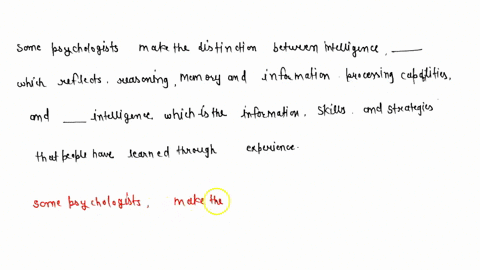 some psychologists make the distinction between intelligence, ____
which reflects, reasoning, memory and information processing capabilities,
and ___ intelligence which is the information, skills and strategies
that people have learned through experience.
some psychologists, make the